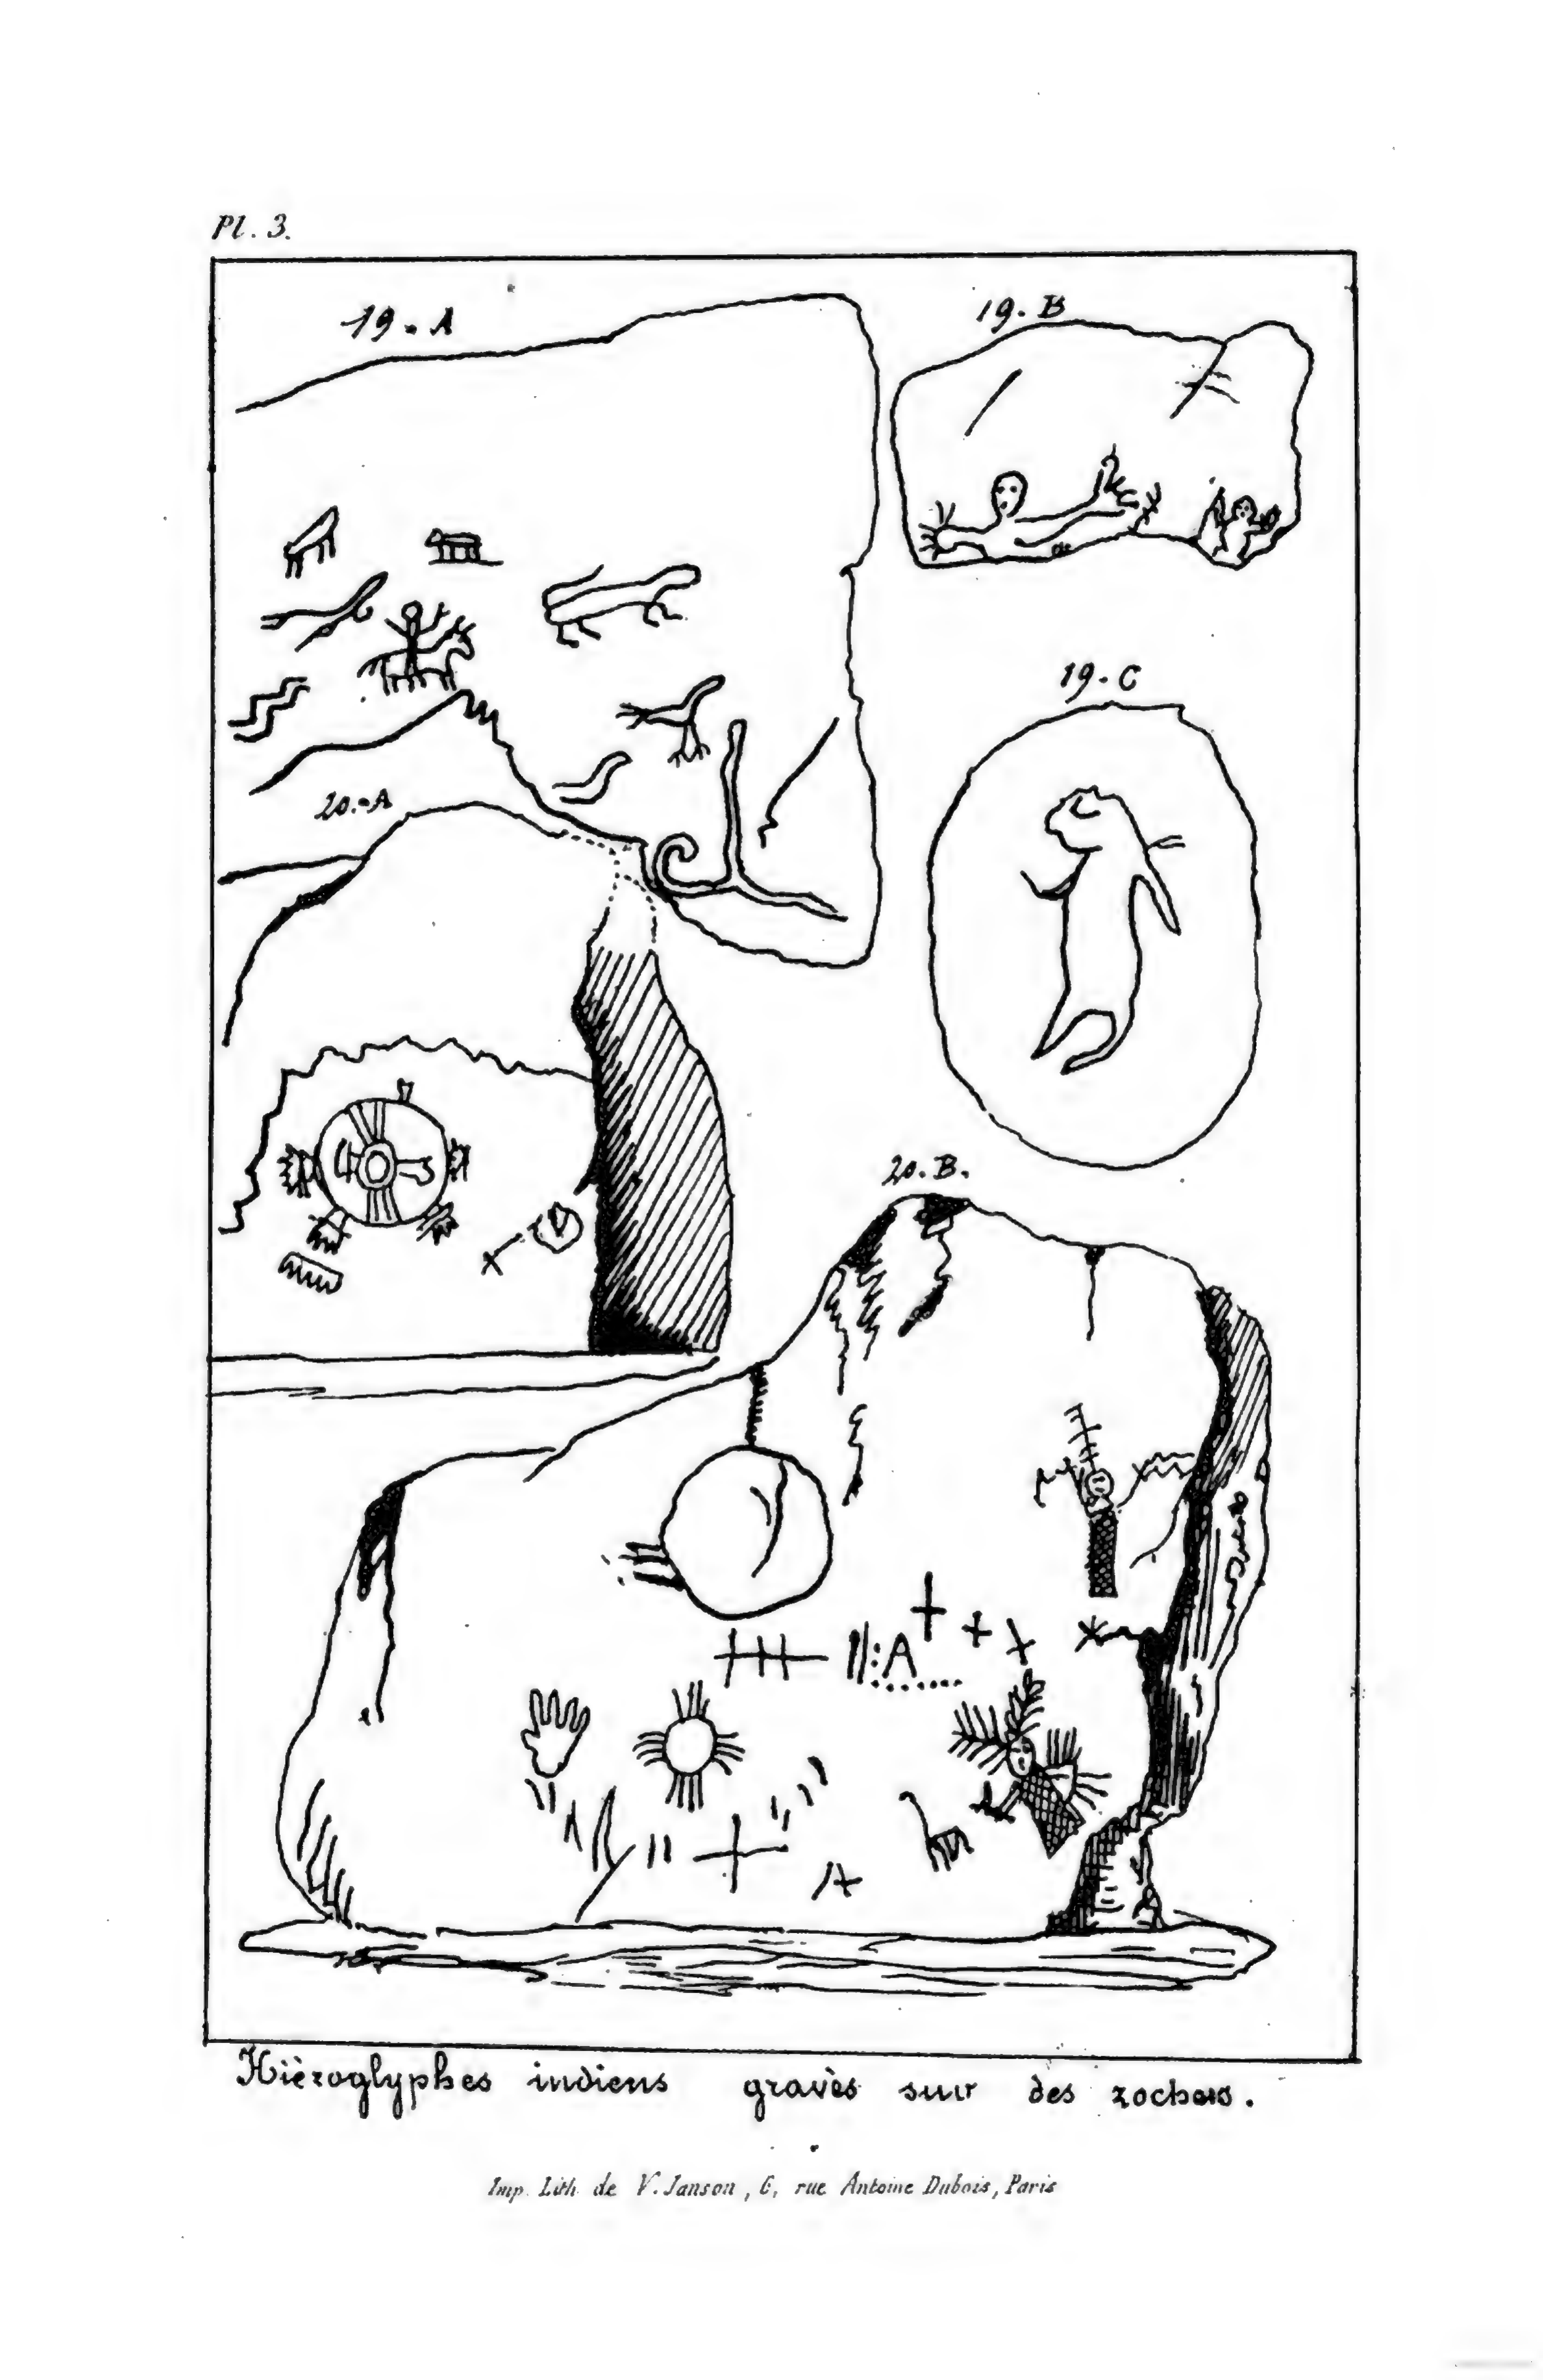 Pl. 3.
19. A
19. B
19. C
20. A
20. B.
Hièroglyphes indiens gravès sur des rochers.
Imp. Lith. de V. Janson, 6, rue Antoine Dubois, Paris